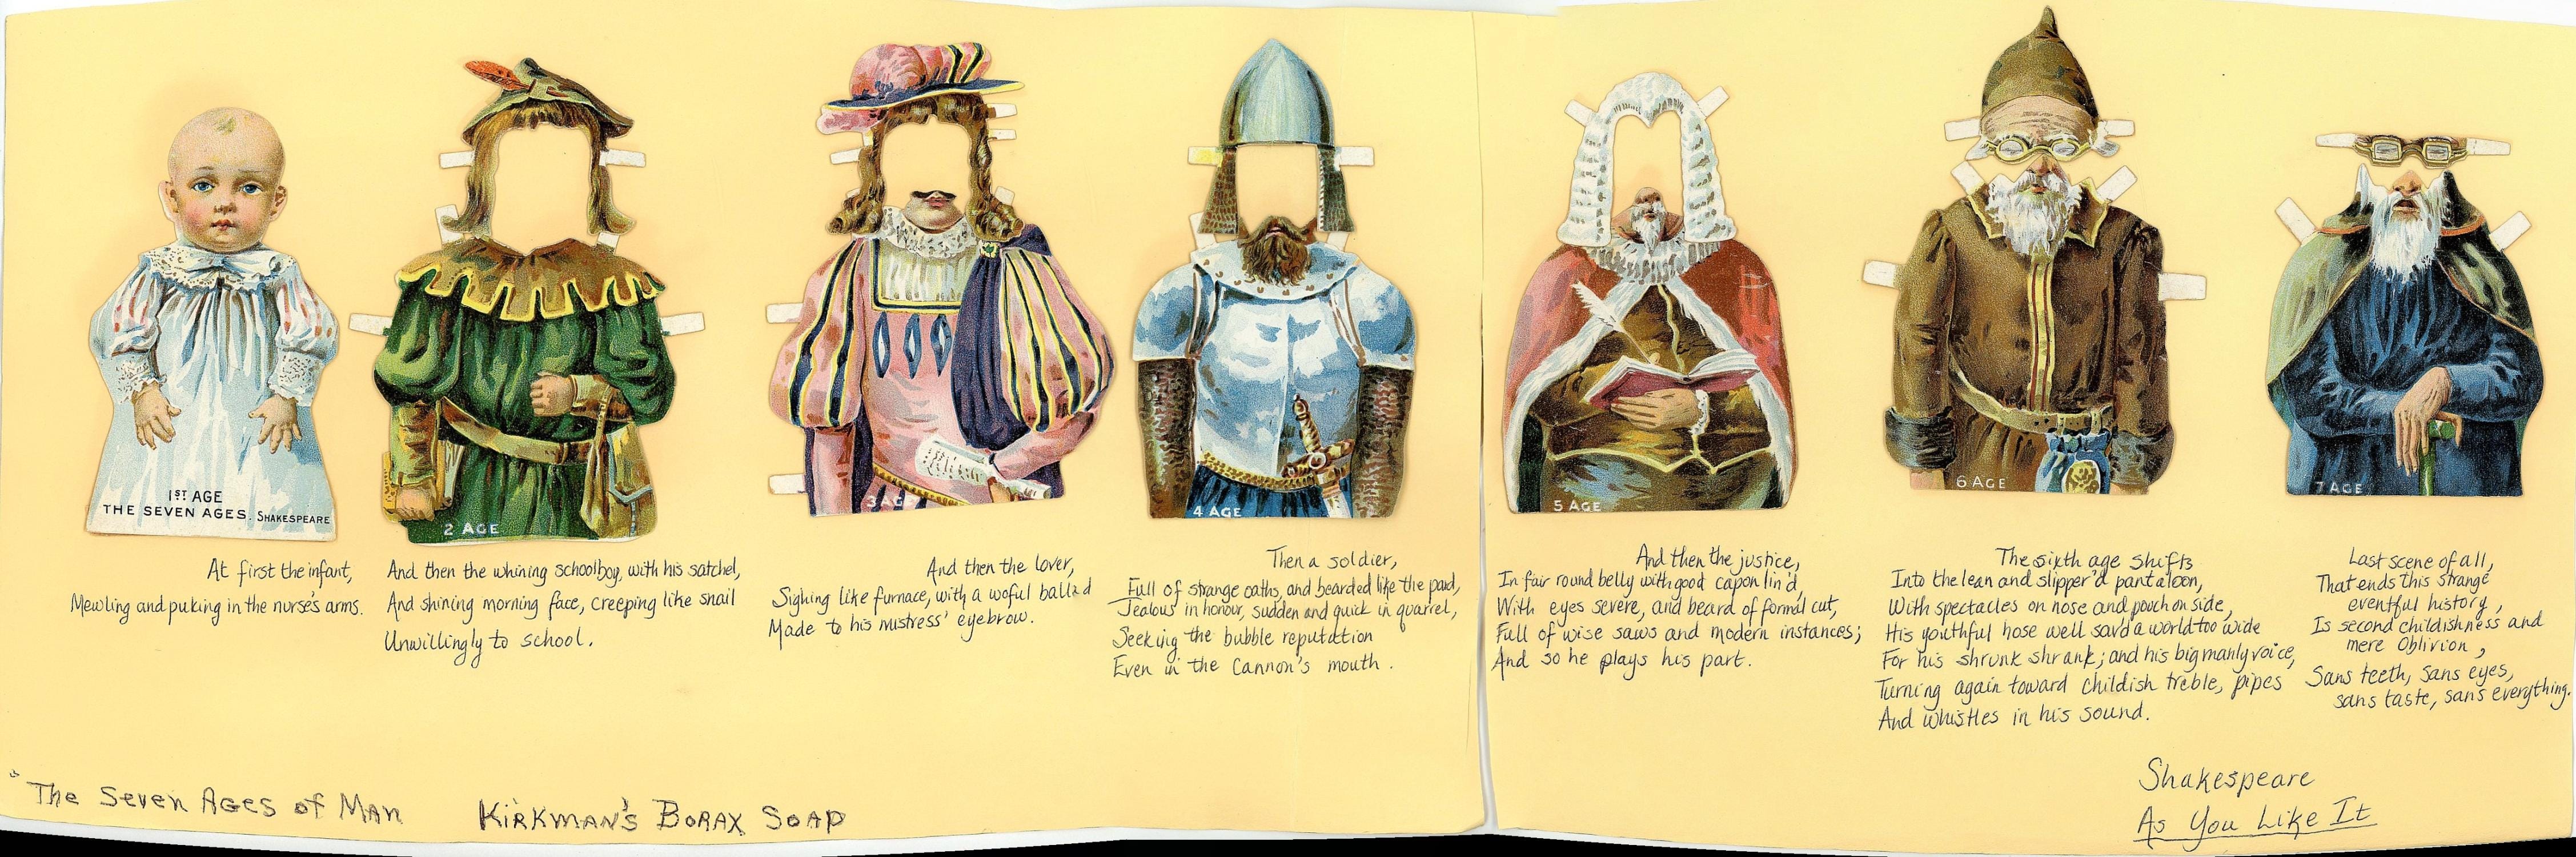 1ST AGE
THE SEVEN AGES. SHAKESPEARE
2 AGE
3 AG
4 AGE
5 AGE
6 AGE
7 AGE
At first the infant,
Mewling and puking in the nurse's arms.
And then the whining schoolboy, with his satchel,
And shining morning face, creeping like snail
Unwillingly to school.
And then the lover,
Sighing like furnace, with a woful ballad
Made to his mistress' eyebrow.
Then a soldier,
Full of strange oaths, and bearded like the pard,
Jealous in honour, sudden and quick in quarrel,
Seeking the bubble reputation
Even in the Cannon's mouth.
And then the justice,
In fair round belly with good capon lin'd,
With eyes severe, and beard of formal cut,
Full of wise saws and modern instances;
And so he plays his part.
The sixth age shifts
Into the lean and slipper'd pantaloon,
With spectacles on nose and pouch on side,
His youthful hose well sav'd a world too wide
For his shrunk shrank; and his big manly voice,
Turning again toward childish treble, pipes
And whistles in his sound.
Last scene of all,
That ends this strange
eventful history,
Is second childishness and
mere Oblivion,
Sans teeth, sans eyes,
sans taste, sans everything.
"The Seven Ages of Man
Kirkman's Borax Soap
Shakespeare
As You Like It